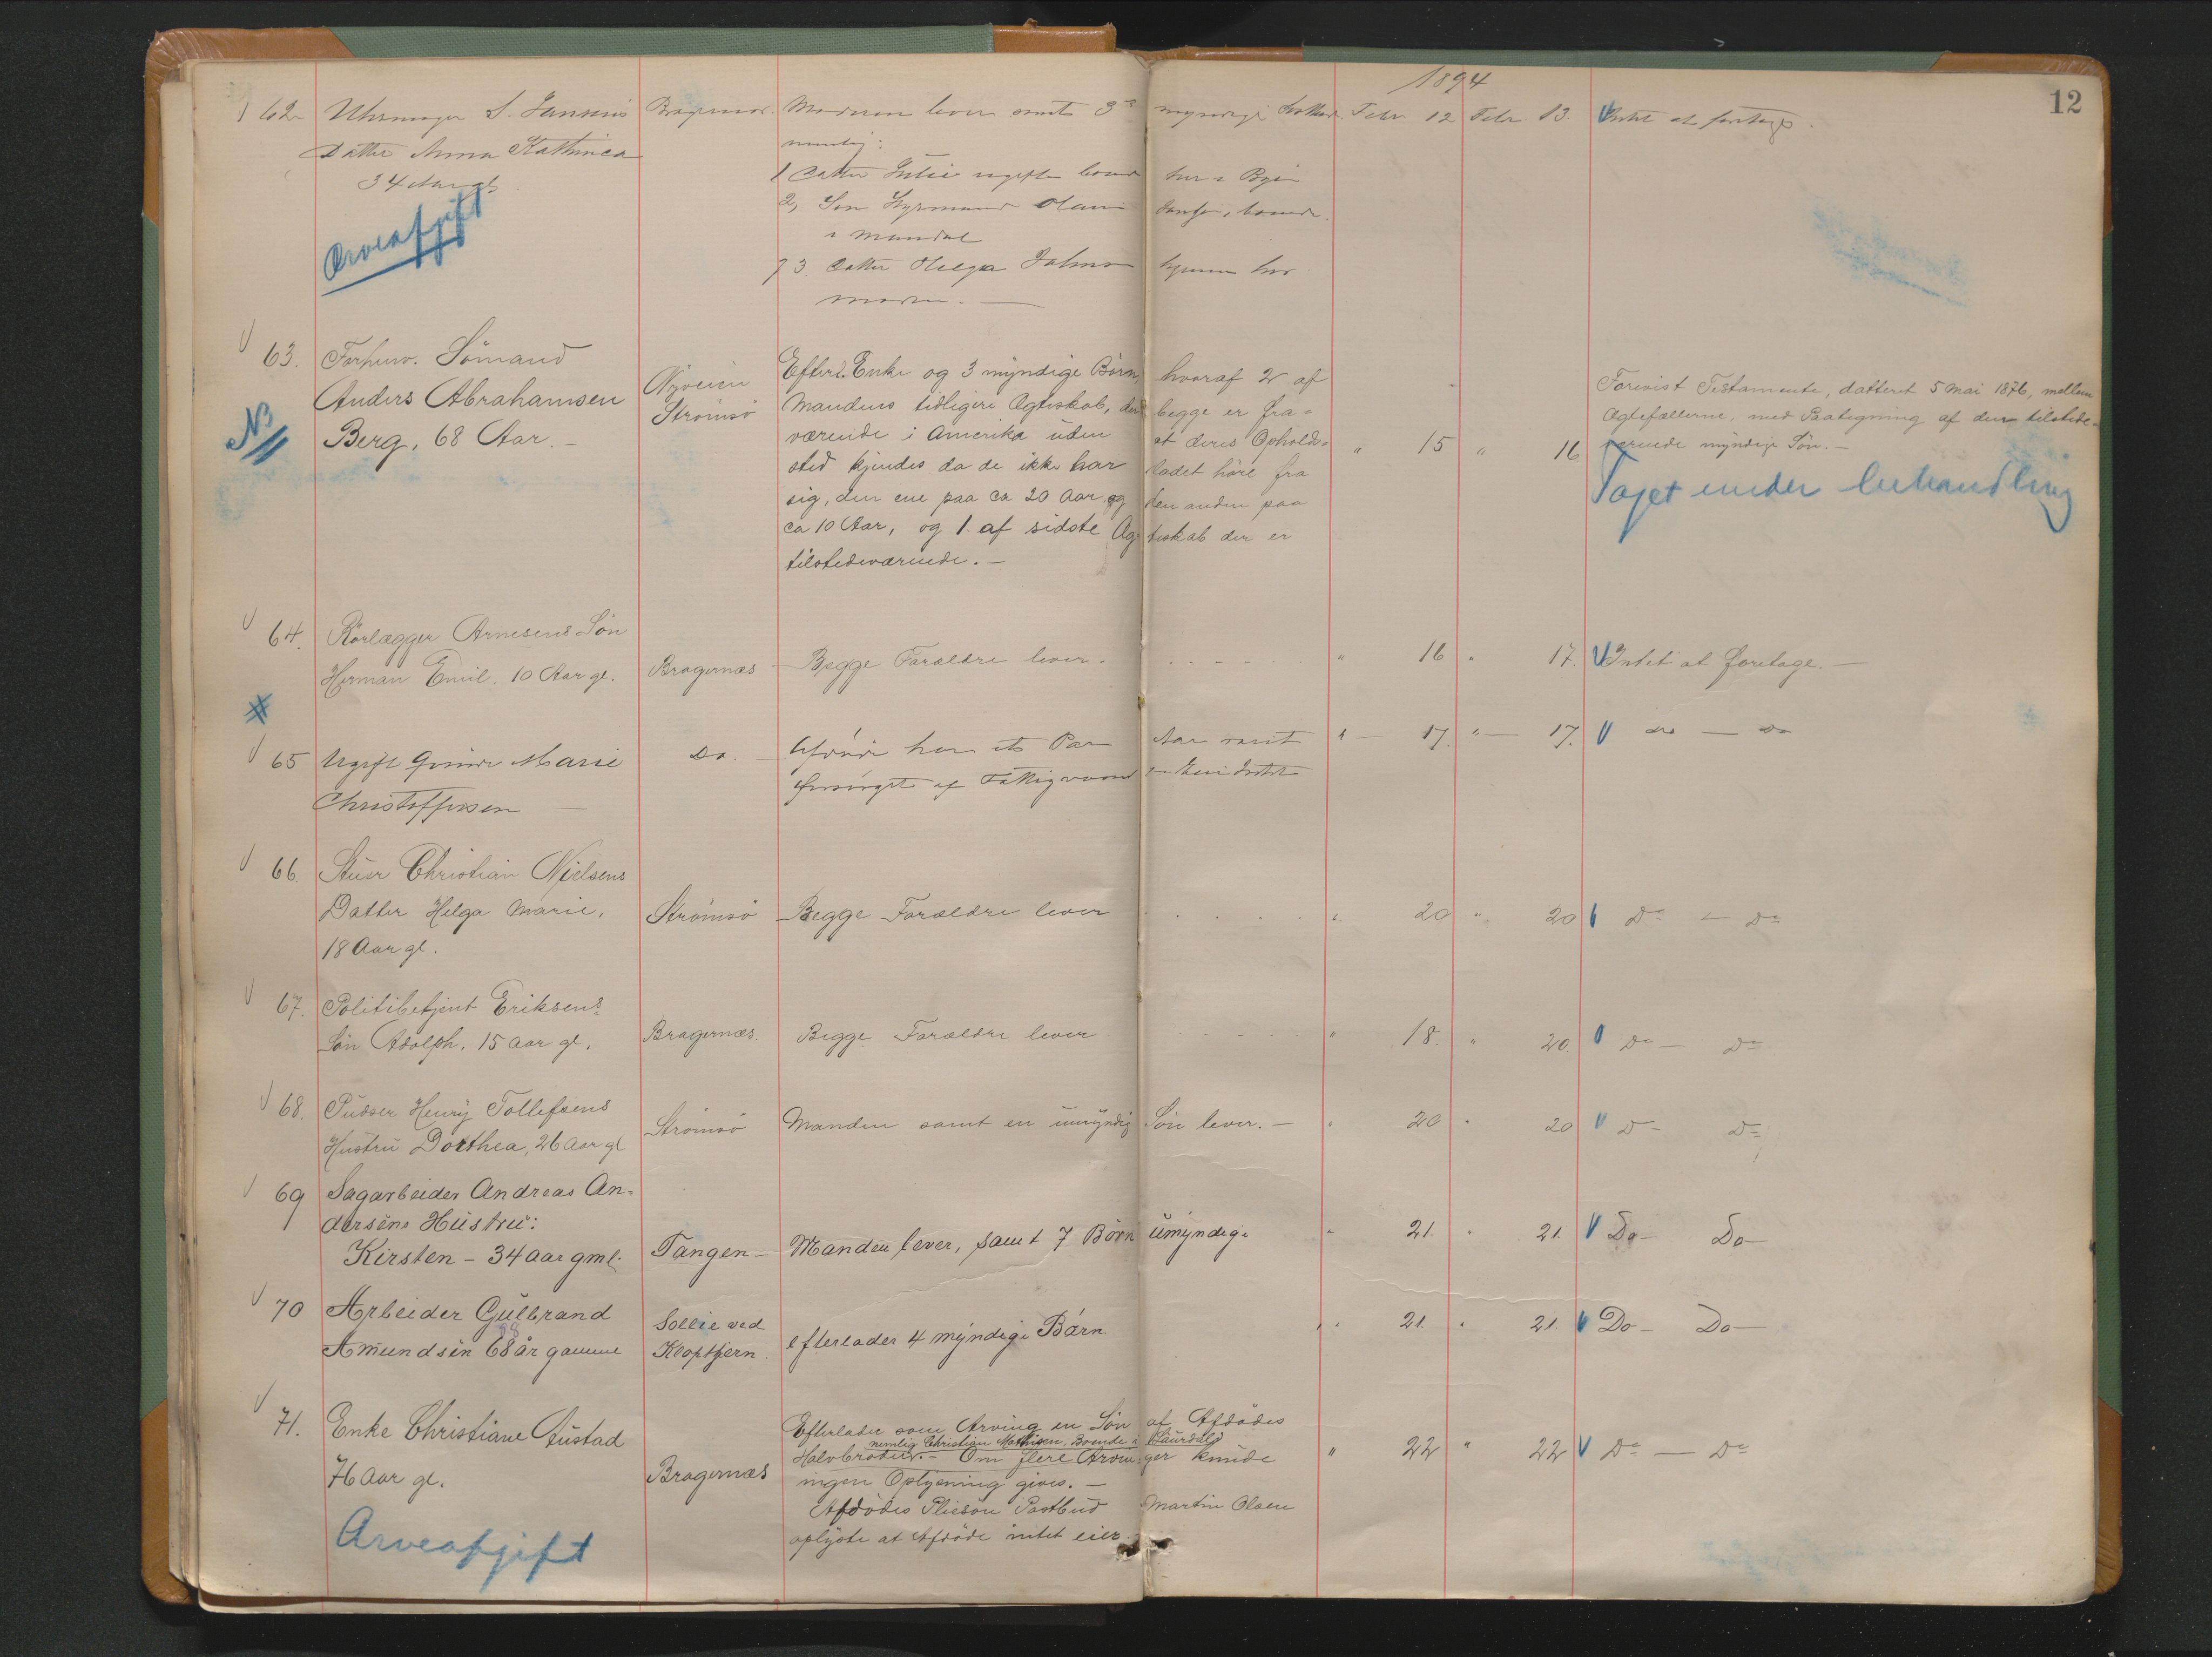 1894
12
62 Uhrmager S. Jansens Bragernæs. Moderen lever samt 3 myndige Febr. 12 Febr. 13. Intet at foretage.
Datter Anna Kathinca nemlig:
34 Aar gl. 1 Datter Julie ugift boende her i Byen
Arveafgift
2, Søn Styrmand Olaus Jansen, boende
i Mandal
3. Datter Helga hjemme hos
Moren. —
63. Forhenv. Sömand
Anders Abrahamsen
Berg, 68 Aar. —
NB
Nyveien
Strömsö
Efterl. Enke og 3 myndige Börn, hvoraf 2 af
Mandens tidligere Ægteskab, der begge er fra=
værende i Amerika uden at deres Opholds=
sted kjendes da de ikke har ladet höre fra
sig, den ene paa ca 20 Aar og den anden paa
ca 10 Aar, og 1 af sidste Ægteskab der er
tilstedeværende. —
" 15 " 16
Forevist Testamente, datteret 5 Mai 1876, mellem
Ægtefællerne, med Paategning af den tilstede=
værende myndige Sön. —
Taget under behandling
64. Rörlægger Arnesens Sön
Herman Emil. 10 Aar gl. Bragernæs Begge Forældre lever. " 16 " 17. Intet at foretage. —
65 Ugift Qvinde Marie Do. Afdøde har et Par Aar været " 17. " 17. do — do
Christoffersen forsørget af Fattigvæsenet
66. Stuer Christian Nielsens
Datter Helga Marie, Strömsö Begge Forældre lever " 20 " 20 Do — Do
18 Aar gl.
67. Politibetjent Eriksens
Sön Adolph, 15 Aar gl. Bragernæs. Begge Forældre lever " 18. " 20. Do — Do
68. Pudser Henry Tollefsens
Hustru Dorthea, 26 Aar gl Strömsö Manden samt en umyndig Sön lever. — " 20 " 20 Do Do
69 Sagarbeider Andreas An=
dersens Hustru:
Kirsten – 34 aar gml. Tangen – Manden lever, samt 7 Börn umyndige " 21. " 21. Do – Do –
70 Arbeider Gulbrand
Amundsen 68 år gamme
Sollie ved
Kloptjern.
efterlader 4 myndige Börn " 21. " 21. Do – Do –
71. Enke Christiane Austad
76 Aar gl. Bragernæs
Arveafgift
Efterlader som Arving en Sön af Afdödes
nemlig Christian Mathisen, Boende i Laurdal
Halvbroder. – Om flere Arvinger kunde
ingen Oplysning gives. —
Afdödes Pliesön Postbud Martin Olsen
oplyste at Afdöde intet eier.
" 22 " 22 Do — Do